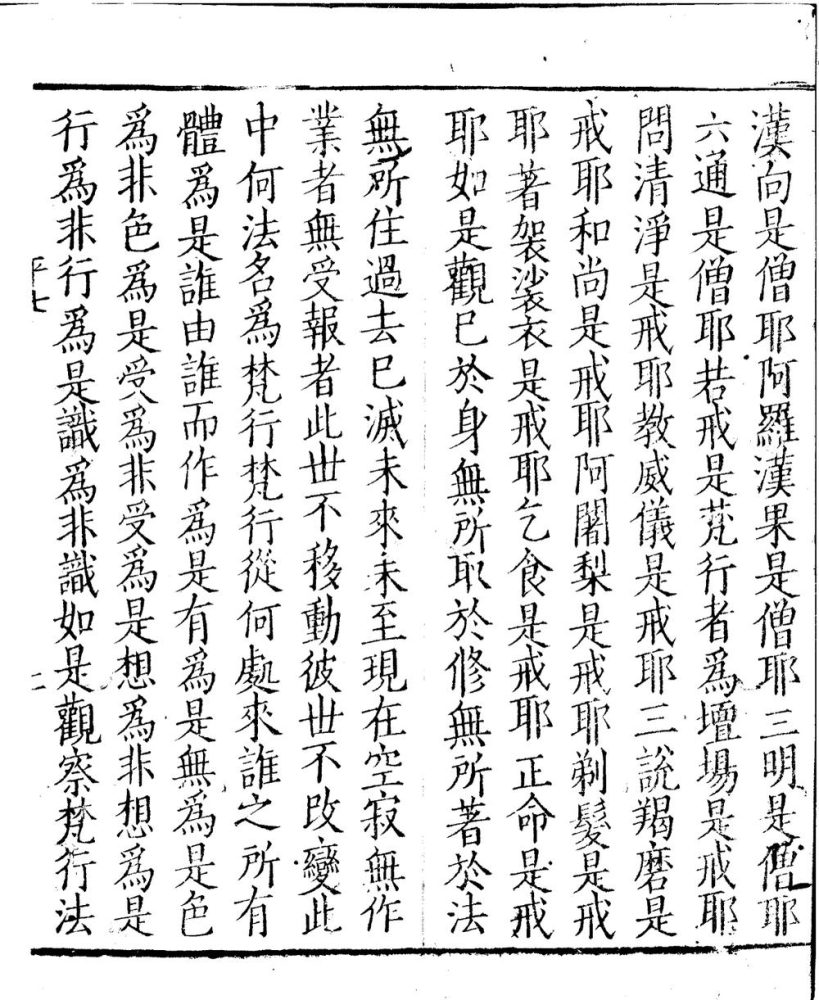 漢向是僧耶阿羅漢果是僧耶三明是僧耶
六通是僧耶若戒是梵行者為壇場是戒耶
問清淨是戒耶教威儀是戒耶三說羯磨是
戒耶和尚是戒耶阿闍梨是戒耶剃髮是戒
耶著袈裟衣是戒耶乞食是戒耶正命是戒
耶如是觀已於身無所取於修無所著於法
無所住過去已滅未來未至現在空寂無作
業者無受報者此世不移動彼世不改變此
中何法名為梵行梵行從何處來誰之所有
體為是誰由誰而作為是有為是無為是色
為非色為是受為非受為是想為非想為是
行為非行為是識為非識如是觀察梵行法
平七
二